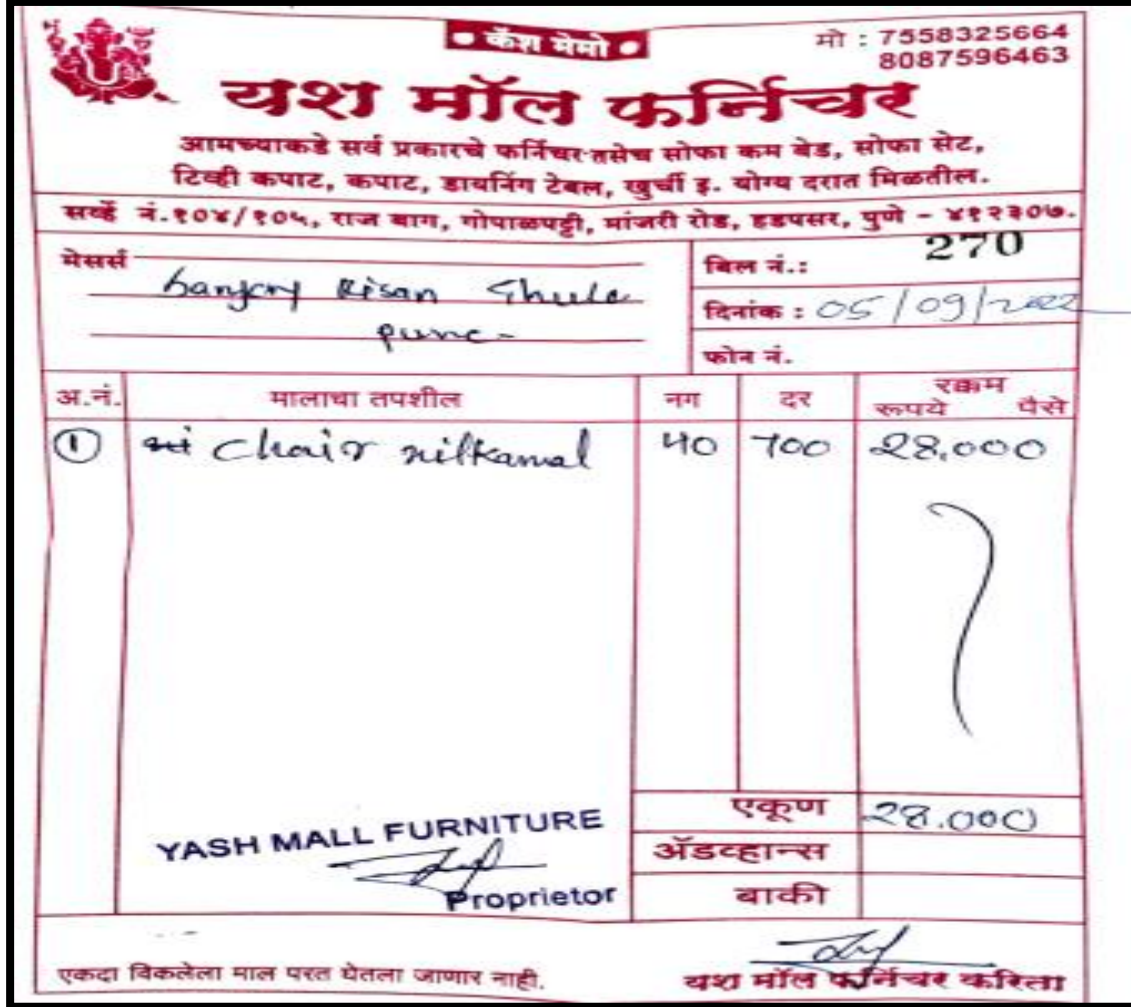 • कॅश मेमो •
मो : 7558325664
8087596463
यश मॉल फर्निचर
आमच्याकडे सर्व प्रकारचे फर्निचर तसेच सोफा कम बेड, सोफा सेट,
टिव्ही कपाट, कपाट, डायनिंग टेबल, खुर्ची इ. योग्य दरात मिळतील.
सर्व्हे नं.१०४/१०५, राज बाग, गोपाळपट्टी, मांजरी रोड, हडपसर, पुणे - ४१२३०७.
मेसर्स
Kisan Ghule
pune-
बिल नं.: 270
दिनांक : 05/09/2022
फोन नं.
अ.नं. मालाचा तपशील नग दर रक्कम
रूपये पैसे
1 chair nilkamal 40 700 28,000
एकूण 28.000
अॅडव्हान्स
बाकी
YASH MALL FURNITURE
Proprietor
एकदा विकलेला माल परत घेतला जाणार नाही.
यश मॉल फर्निचर करिता